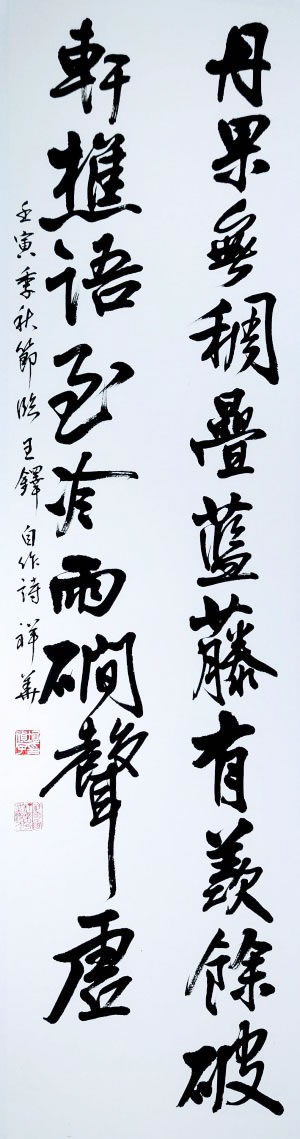 丹果無稠疊藍藤有羨餘破
軒樵語至冷雨磵聲虛
壬寅季秋節臨王鐸自作詩祥華